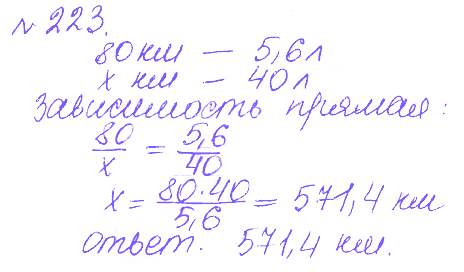 № 223.
80 км — 5,6 л
х км — 40 л
Зависимость прямая:
80/х = 5,6/40
х = 80·40/5,6 = 571,4 км
Ответ. 571,4 км.